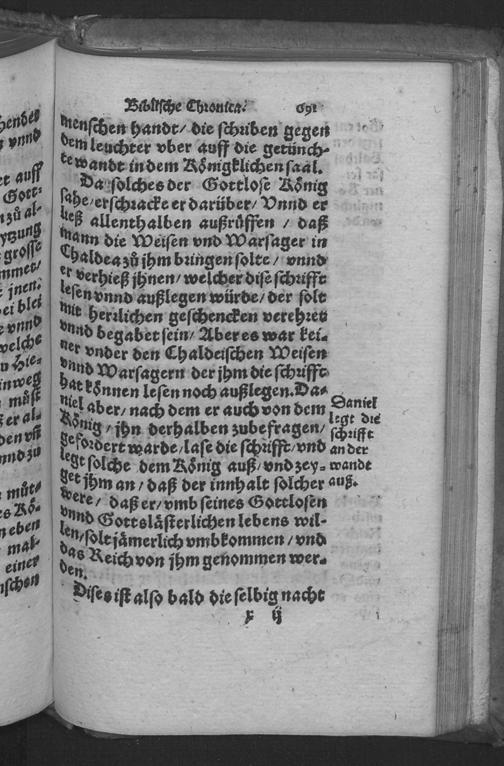 Biblische Chronica. 691
menschen handt/ die schriben gegen
dem leuchter vber auff die getünch-
te wandt in dem Königklichen saal.
Da solches der Gottlose König
sahe/ erschracke er darüber/ Vnnd er
ließ allenthalben außrüffen / daß
mann die Weisen vnd Warsager in
Chaldea zů jhm bringen solte/ vnnd
er verhieß jhnen/ welcher dise schrifft
lesen vnnd außlegen würde/ der solt
mit herrlichen geschencken verehret
vnnd begabet sein/ Aber es war kei-
ner vnder den Chaldeischen Weisen
vnnd Warsagern der jhm die schrifft
hat können lesen noch außlegen. Da-
niel aber/ nach dem er auch von dem
König / jhn derhalben zubefragen/
gefordert warde/ lase die schrifft/ vnd
legt solche dem König auß/ vnd zey-
get jhm an/ daß der innhalt solcher
were / daß er/ vmb seines Gottlosen
vnnd Gottslästerlichen lebens wil-
len/ solt jämerlich vmbkommen / vnd
das Reich von jhm genommen wer-
den.
Dises ist also bald die selbig nacht
x ij
Daniel
legt die
schrifft
an der
wandt
auß.